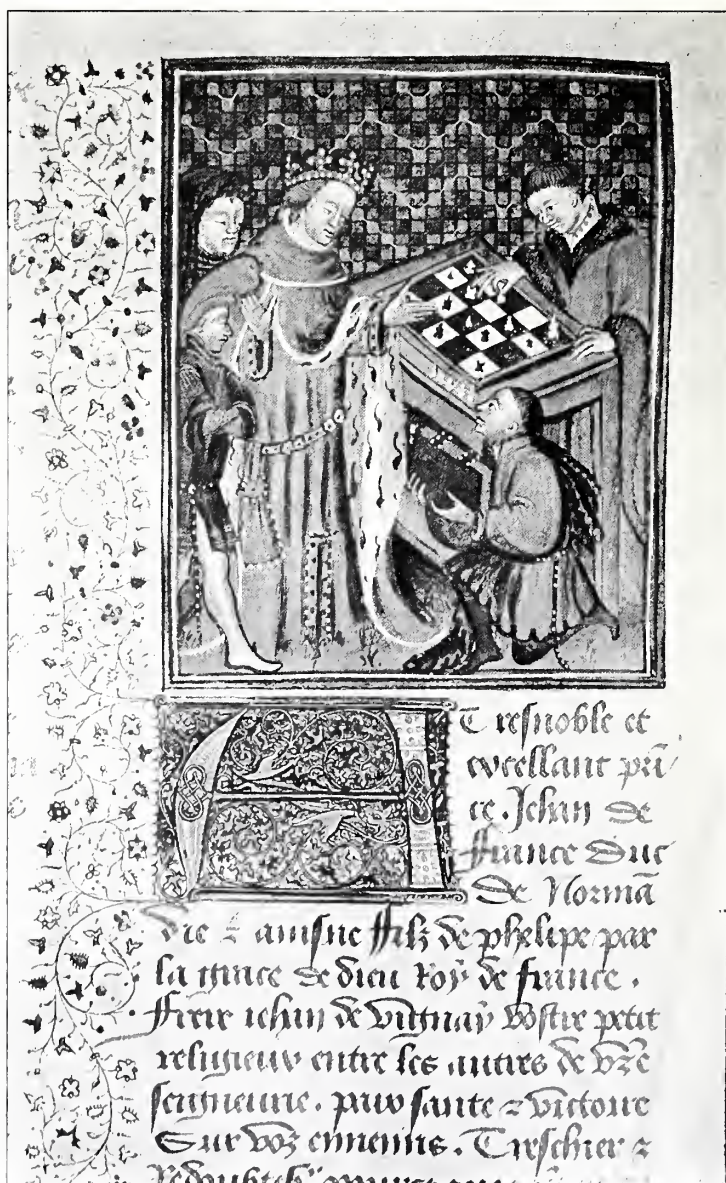 A Tresnoble et
excellant prī
ce. Jehan de
ffrance duc
de Normā
die ⁊ aisne filz de phelipe par
la grace de dieu Roy de france.
ffrere iehan de vingnay vostre petit
religieux entre les autres de vr̄e
seigneurie. paix sante ⁊ victoire
Sur voz ennemis. Treschier ⁊